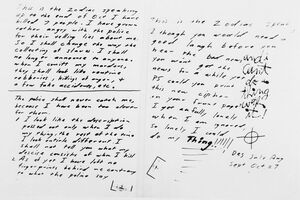 This is the Zodiac speaking
up to the end of Oct I have
killed 7 people. I have grown
rather angry with the police
for their telling lies about me.
So I shall change the way the
collecting of slaves. I shall
no longer announce to anyone.
when I comitt my murders,
they shall look like routine
robberies, killings of anger, +
a few fake accidents, etc.
The police shall never catch me,
because I have been too clever
for them.
1 I look like the description
passed out only when I do
my thing, the rest of the time
I look entirle different. I
shall not tell you what my
descise consists of when I kill
2 As of yet I have left no
fingerprints behind me contrary
to what the police say
This is the Zodiac
I though you would need a
good laugh before you
hear the bad news
you won't get the
news for a while yet
PS could you print
this new cipher
in your frunt page?
I get awfully lonely
when I am ignored,
So lonely I could
do my Thing!!!!!!
Des July Aug
Sept Oct = 7